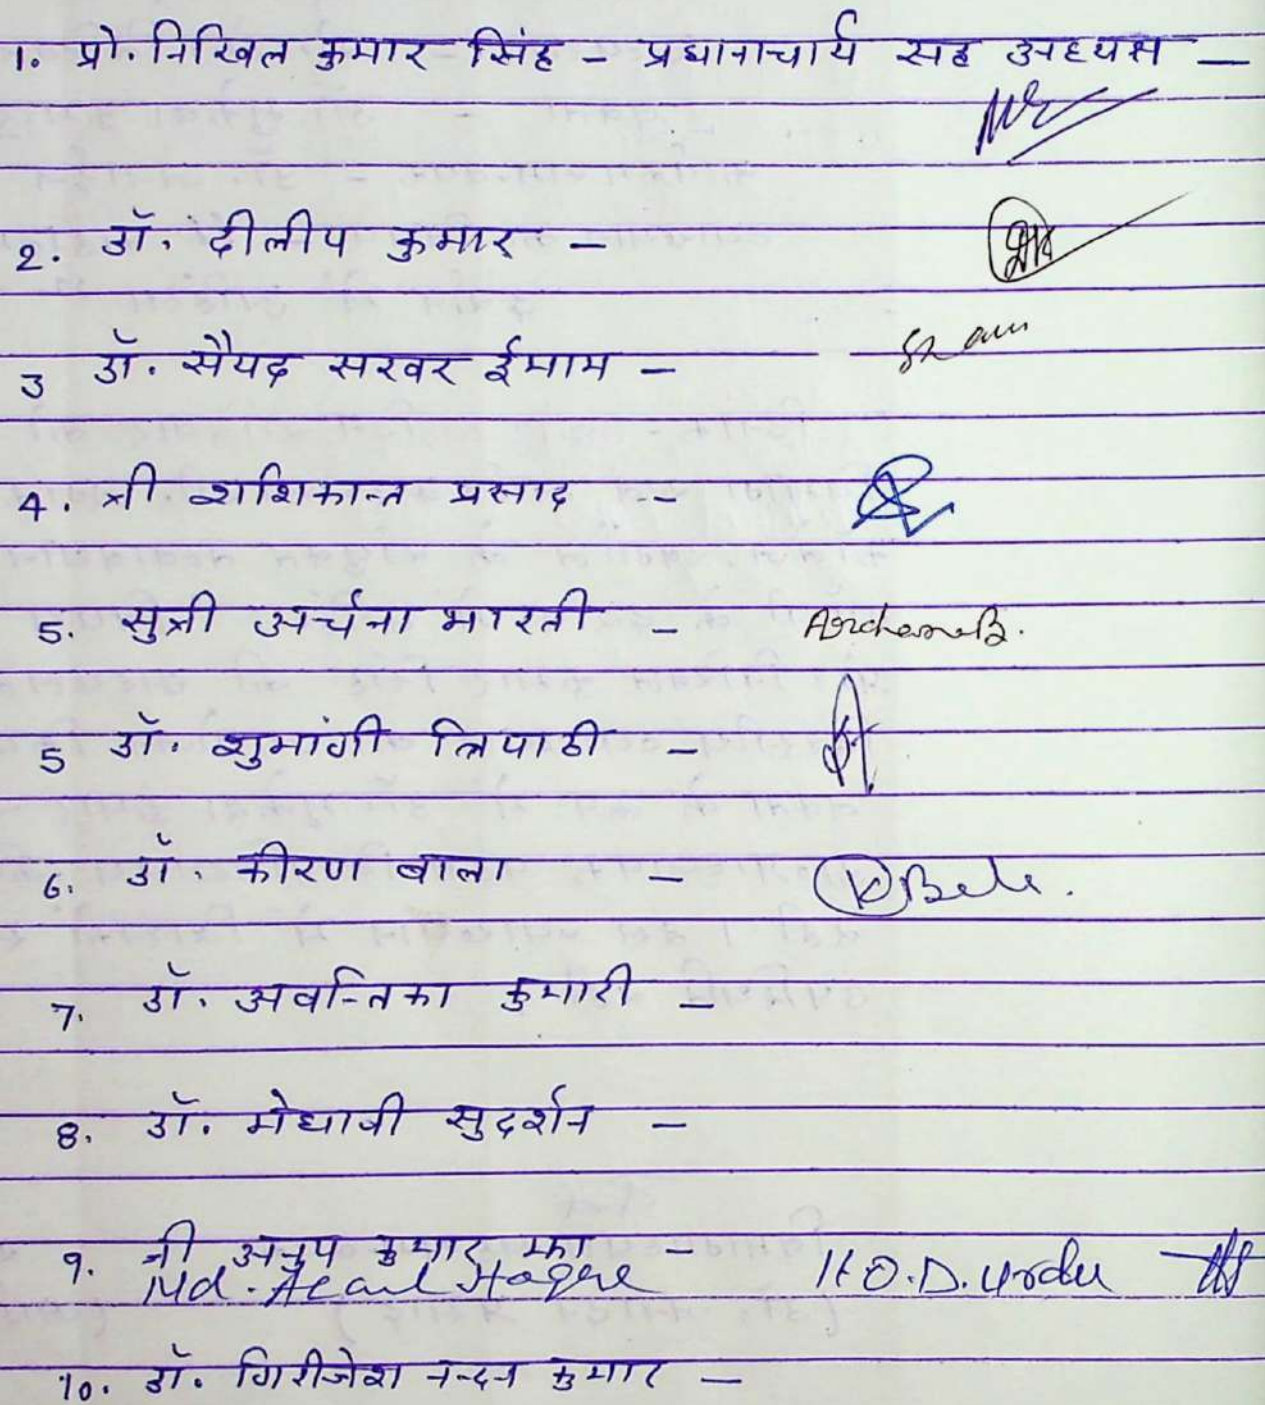 1. प्रो. निखिल कुमार सिंह - प्रधानाचार्य सह अध्यक्ष —
2. डॉ. दीलीप कुमार -
3 डॉ. सैयद सरवर ईमाम -
4. श्री शशिकान्त प्रसाद --
5. सुश्री अर्चना भारती - ArchanaB.
5 डॉ. शुभांगी त्रिपाठी -
6. डॉ. कीरण बाला - KBala.
7. डॉ. अवन्तिका कुमारी -
8. डॉ. मेधावी सुदर्शन -
9. श्री अनुप कुमार झा -
Md. H.O.D. Urdu
10. डॉ. गिरीजेश नन्दन कुमार -